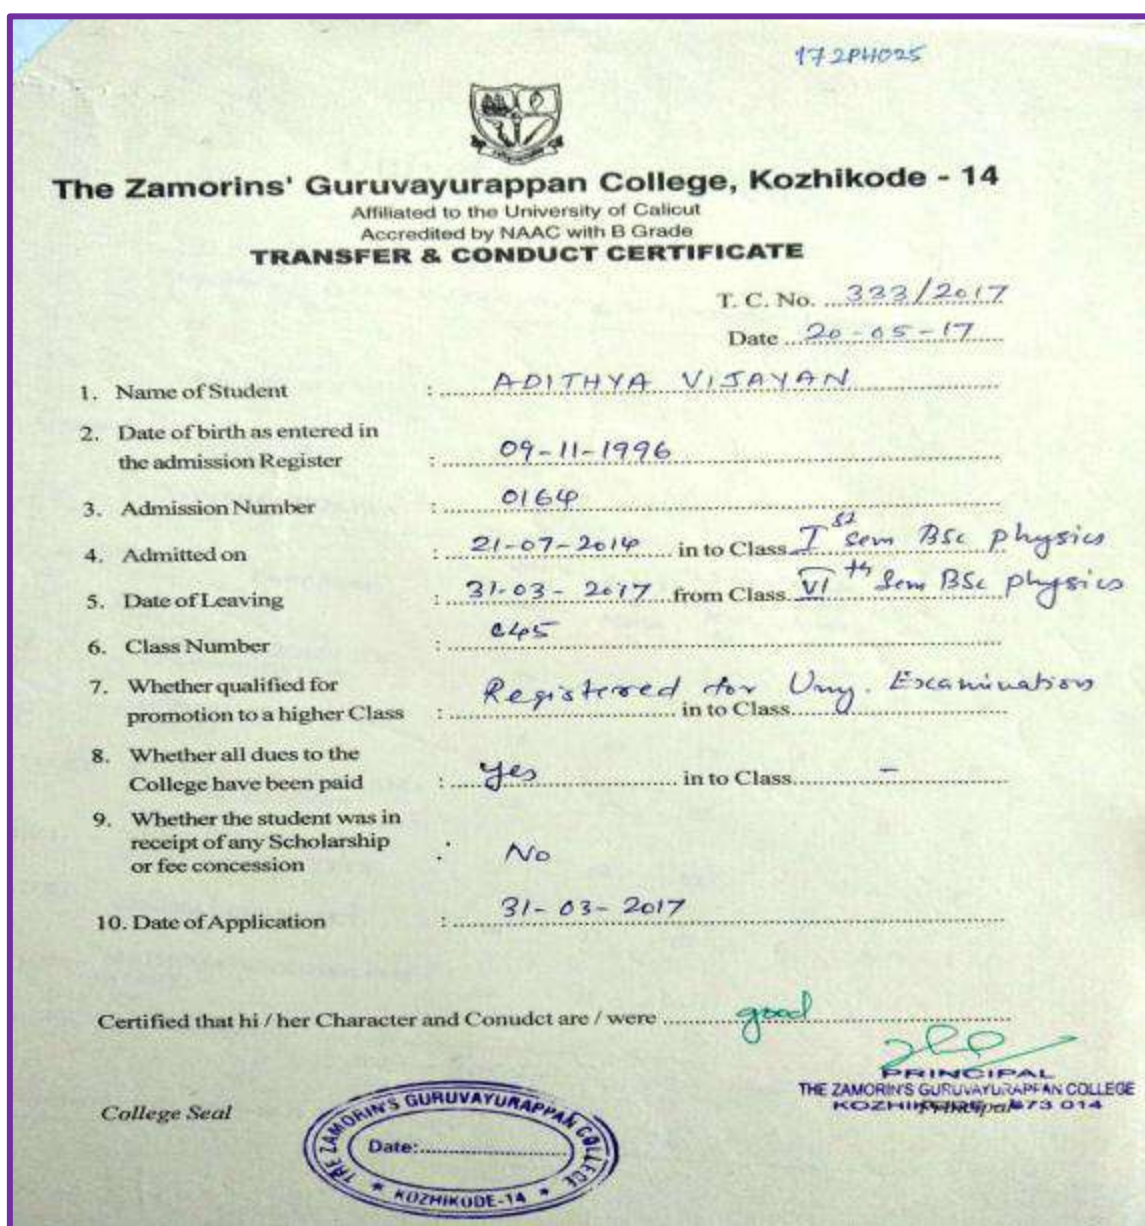 172PH025
The Zamorins' Guruvayurappan College, Kozhikode - 14
Affiliated to the University of Calicut
Accredited by NAAC with B Grade
TRANSFER & CONDUCT CERTIFICATE
T. C. No. 333/2017
Date 20-05-17
1. Name of Student : ADITHYA VIJAYAN
2. Date of birth as entered in
the admission Register : 09-11-1996
3. Admission Number : 0164
4. Admitted on : 21-07-2014 in to Class I st sem BSc physics
5. Date of Leaving : 31-03-2017 from Class VI th Sem BSc physics
6. Class Number :
7. Whether qualified for
promotion to a higher Class : Registered for Uny. Examination in to Class
8. Whether all dues to the
College have been paid : yes in to Class -
9. Whether the student was in
receipt of any Scholarship
or fee concession : No
10. Date of Application : 31-03-2017
Certified that hi / her Character and Conudct are / were good
PRINCIPAL
THE ZAMORIN'S GURUVAYURAPPAN COLLEGE
KOZHIKODE - 673 014
Principal
College Seal
THE ZAMORIN'S GURUVAYURAPPAN COLLEGE
Date:
* KOZHIKODE-14 *